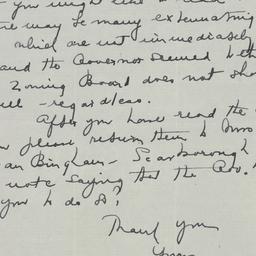 you might like to read
way so many extenuating
which are not immediately
and the Governor seemed to th
Zoning Board does not sh
ell - regardless.
After you have read the
please return them to Mrs
an Bingham - Scarborough
note saying that the Gov.
you to do so?
Thank you